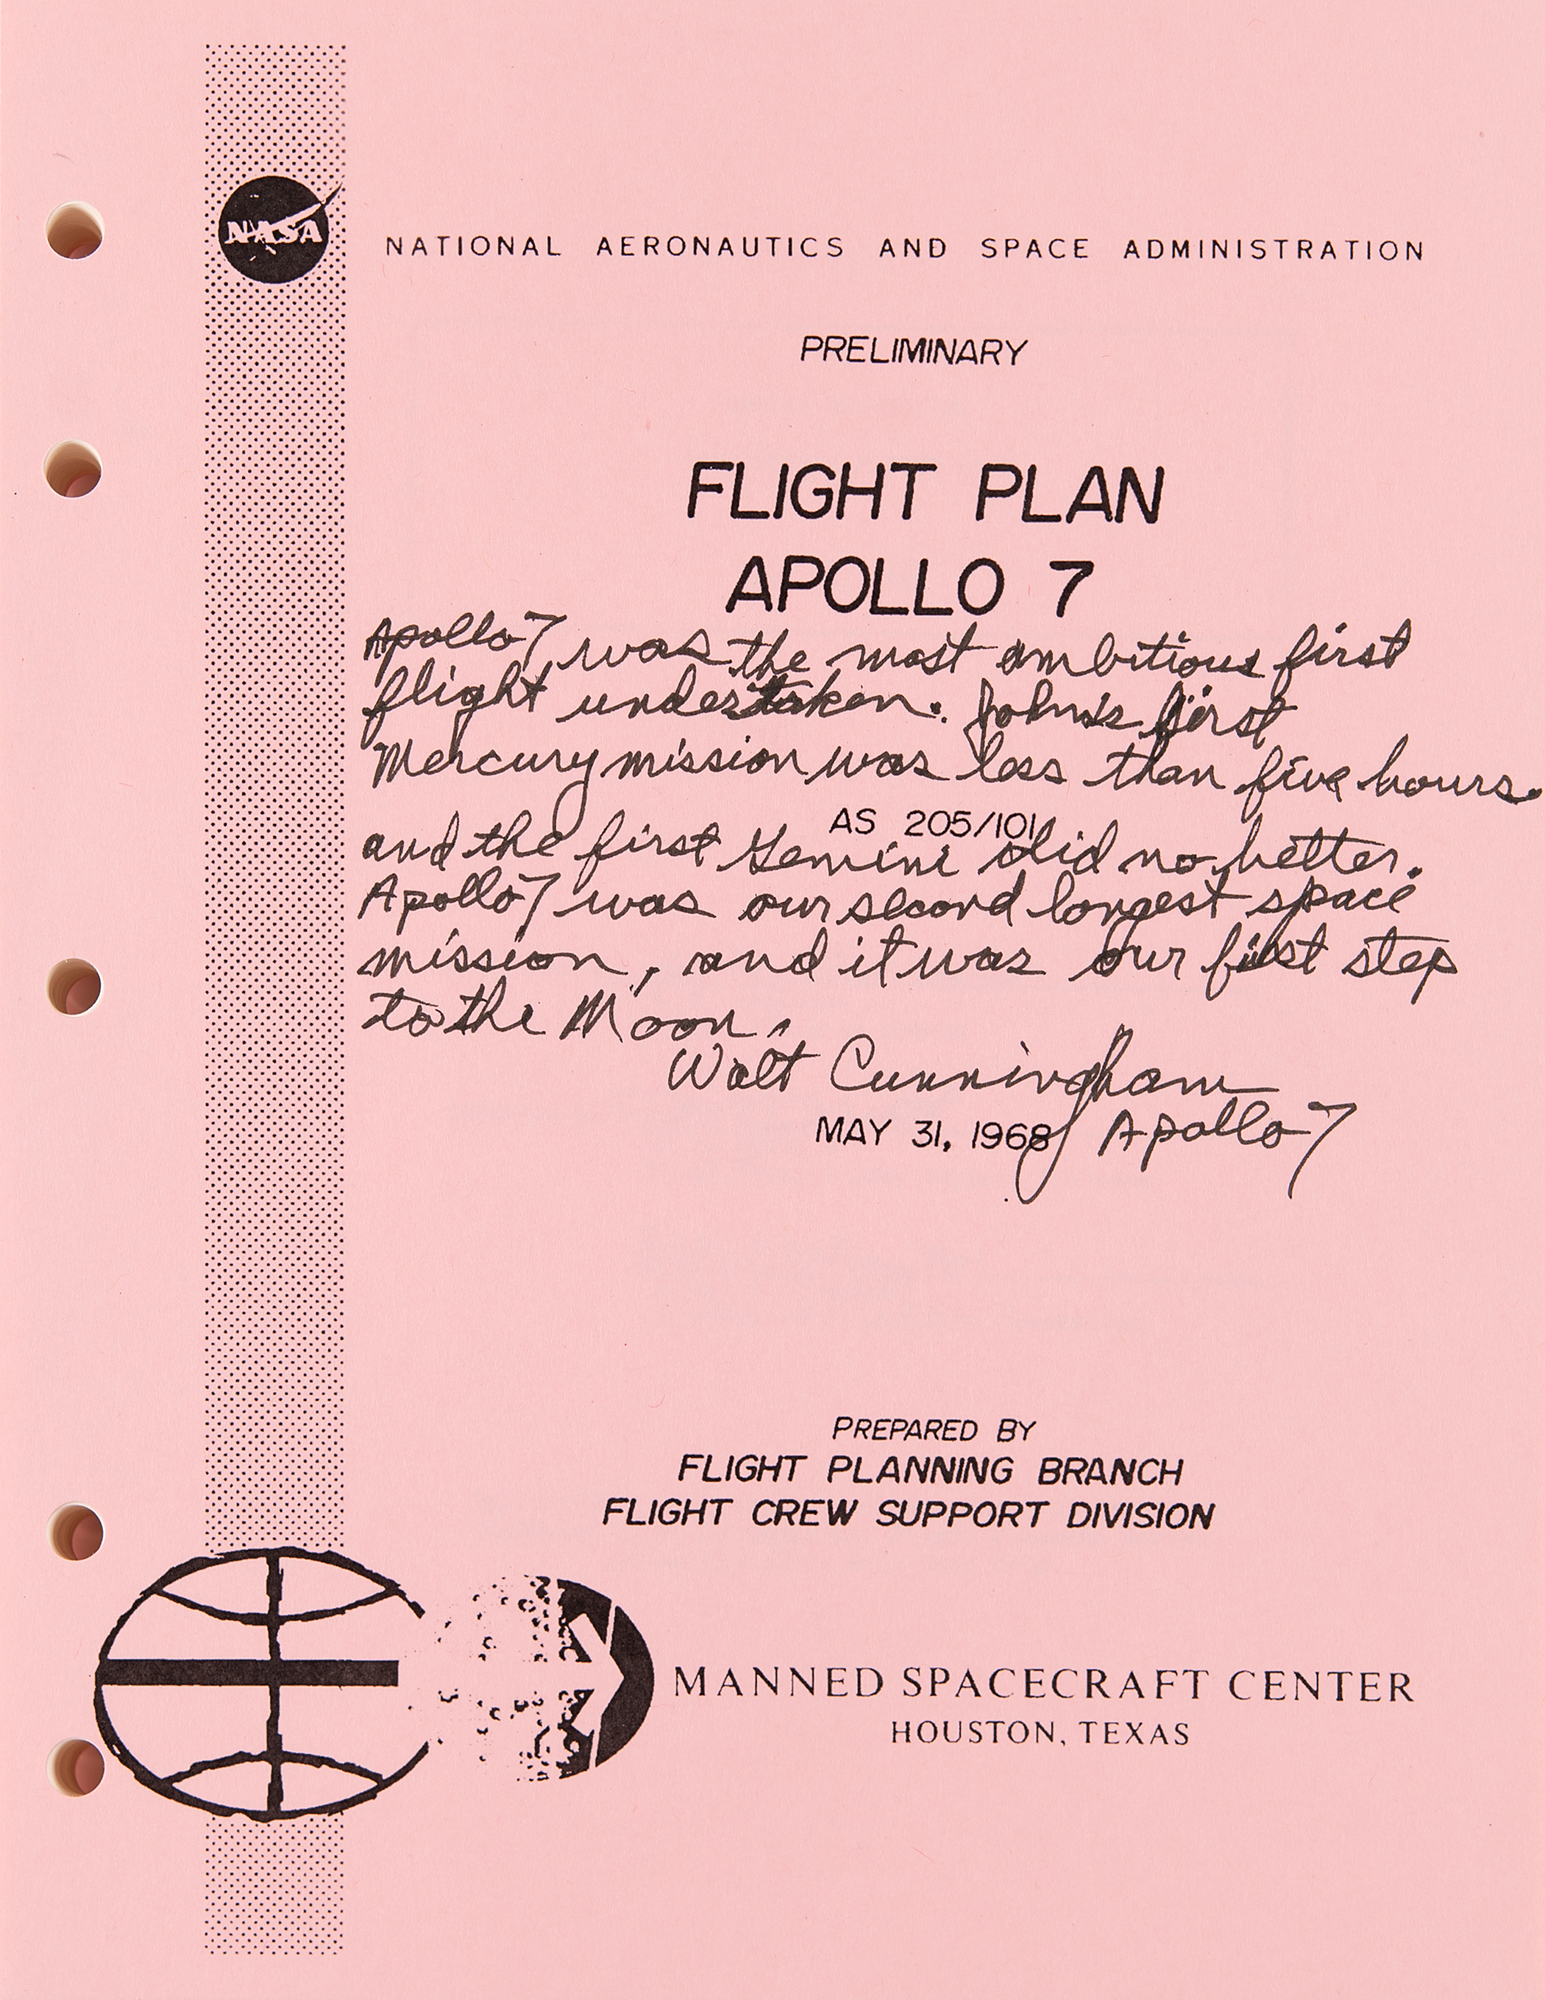 NASA
NATIONAL AERONAUTICS AND SPACE ADMINISTRATION
PRELIMINARY
FLIGHT PLAN
APOLLO 7
Apollo 7 was the most ambitious first
flight undertaken. John's first
Mercury mission was less than five hours.
AS 205/101
and the first Gemini did no better.
Apollo 7 was our second longest space
mission, and it was our first step
to the Moon.
Walt Cunningham
MAY 31, 1968 Apollo 7
PREPARED BY
FLIGHT PLANNING BRANCH
FLIGHT CREW SUPPORT DIVISION
MANNED SPACECRAFT CENTER
HOUSTON, TEXAS